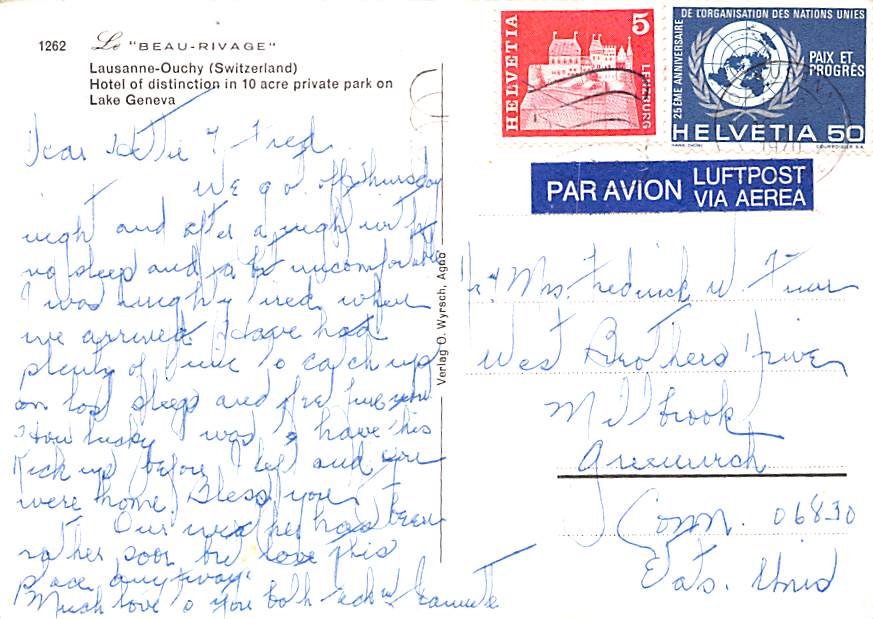 1262 Le "BEAU-RIVAGE"
Lausanne-Ouchy (Switzerland)
Hotel of distinction in 10 acre private park on
Lake Geneva
HELVETIA 5 LENZBURG
25ÈME ANNIVERSAIRE DE L'ORGANISATION DES NATIONS UNIES
PAIX ET
PROGRÈS
HELVETIA 50
HANS THÖNI COURVOISIER S.A.
1970
PAR AVION LUFTPOST
VIA AEREA
Verlag O. Wyrsch, Agno
Dear Hettie & Fred
We got off Thursday
night and after a night with
no sleep and a bit uncomfortable
I was mighty tired when
we arrived. Have had
plenty of time to catch up
on lost sleep and
How lucky I was to have this
kick up before I left and you
were home. Bless you
Our weather has been
rather poor but love this
place anyway.
Much love to you both
Mr & Mrs. Frederick W.
West Brothers Drive
Millbrook
Greenwich
Conn. 06830
Etats. Unis